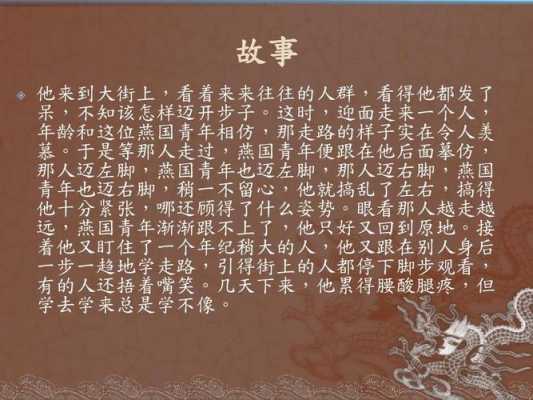 故事
他来到大街上，看着来来往往的人群，看得他都发了
呆，不知该怎样迈开步子。这时，迎面走来一个人，
年龄和这位燕国青年相仿，那走路的样子实在令人羡
慕。于是等那人走过，燕国青年便跟在他后面摹仿，
那人迈左脚，燕国青年也迈左脚，那人迈右脚，燕国
青年也迈右脚，稍一不留心，他就搞乱了左右，搞得
他十分紧张，哪还顾得了什么姿势。眼看那人越走越
远，燕国青年渐渐跟不上了，他只好又回到原地。接
着他又盯住了一个年纪稍大的人，他又跟在别人身后
一步一趋地学走路，引得街上的人都停下脚步观看，
有的人还捂着嘴笑。几天下来，他累得腰酸腿疼，但
学去学来总是学不像。